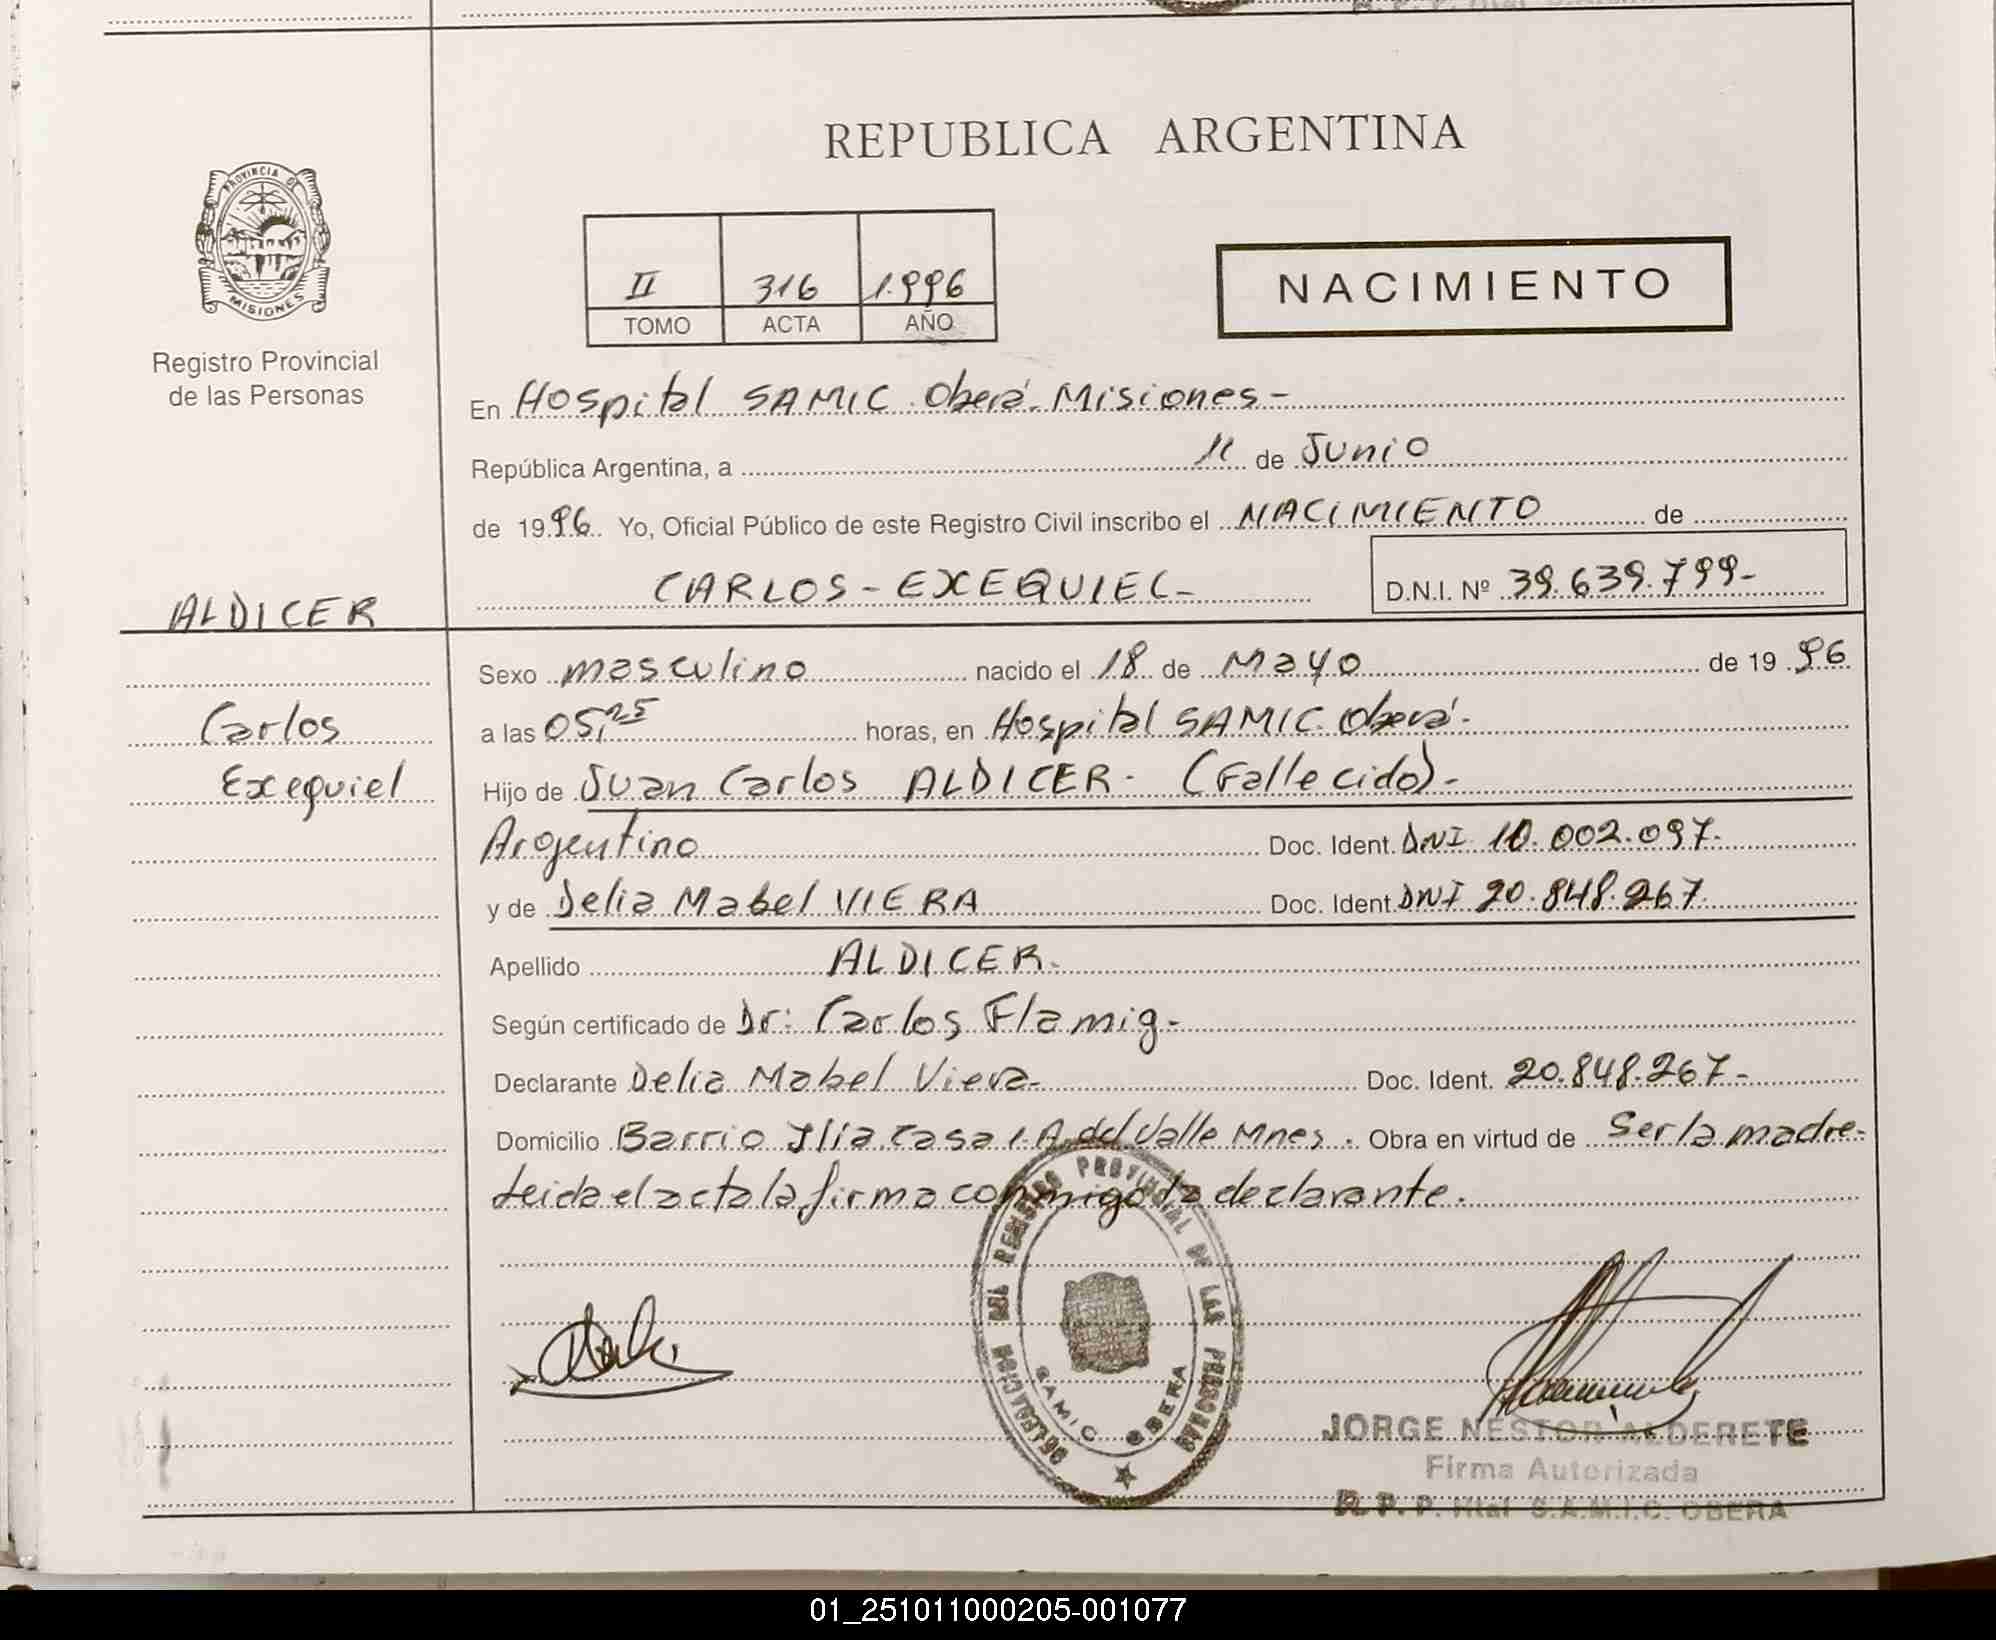 REPUBLICA ARGENTINA
PROVINCIA DE
MISIONES
Registro Provincial
de las Personas
II 316 1.996
TOMO ACTA AÑO
NACIMIENTO
En Hospital SAMIC Oberá. Misiones -
República Argentina, a 11 de Junio
de 1996. Yo, Oficial Público de este Registro Civil inscribo el NACIMIENTO de
ALDICER
CARLOS - EXEQUIEL - D.N.I. Nº 39.639.799-
Carlos
Exequiel
Sexo masculino nacido el 18 de Mayo de 19 96
a las 05,25 horas, en Hospital SAMIC. Oberá -
Hijo de Juan Carlos ALDICER - (Fallecido) -
Argentino Doc. Ident. DNI 10.002.097.
y de Delia Mabel VIERA Doc. Ident. DNI 20.848.267.
Apellido ALDICER.
Según certificado de Dr: Carlos Flamig -
Declarante Delia Mabel Viera. Doc. Ident. 20.848.267 -
Domicilio Barrio Illia Casa 1. A. del Valle Mnes. Obra en virtud de Ser la madre -
Leida el acta la firma conmigo la declarante.
DELEGACION DEL REGISTRO PROVINCIAL DE LAS PERSONAS
SAMIC OBERA
JORGE NESTOR ALDERETE
Firma Autorizada
R. P. P. Htal S.A.M.I.C. OBERA
01_251011000205-001077